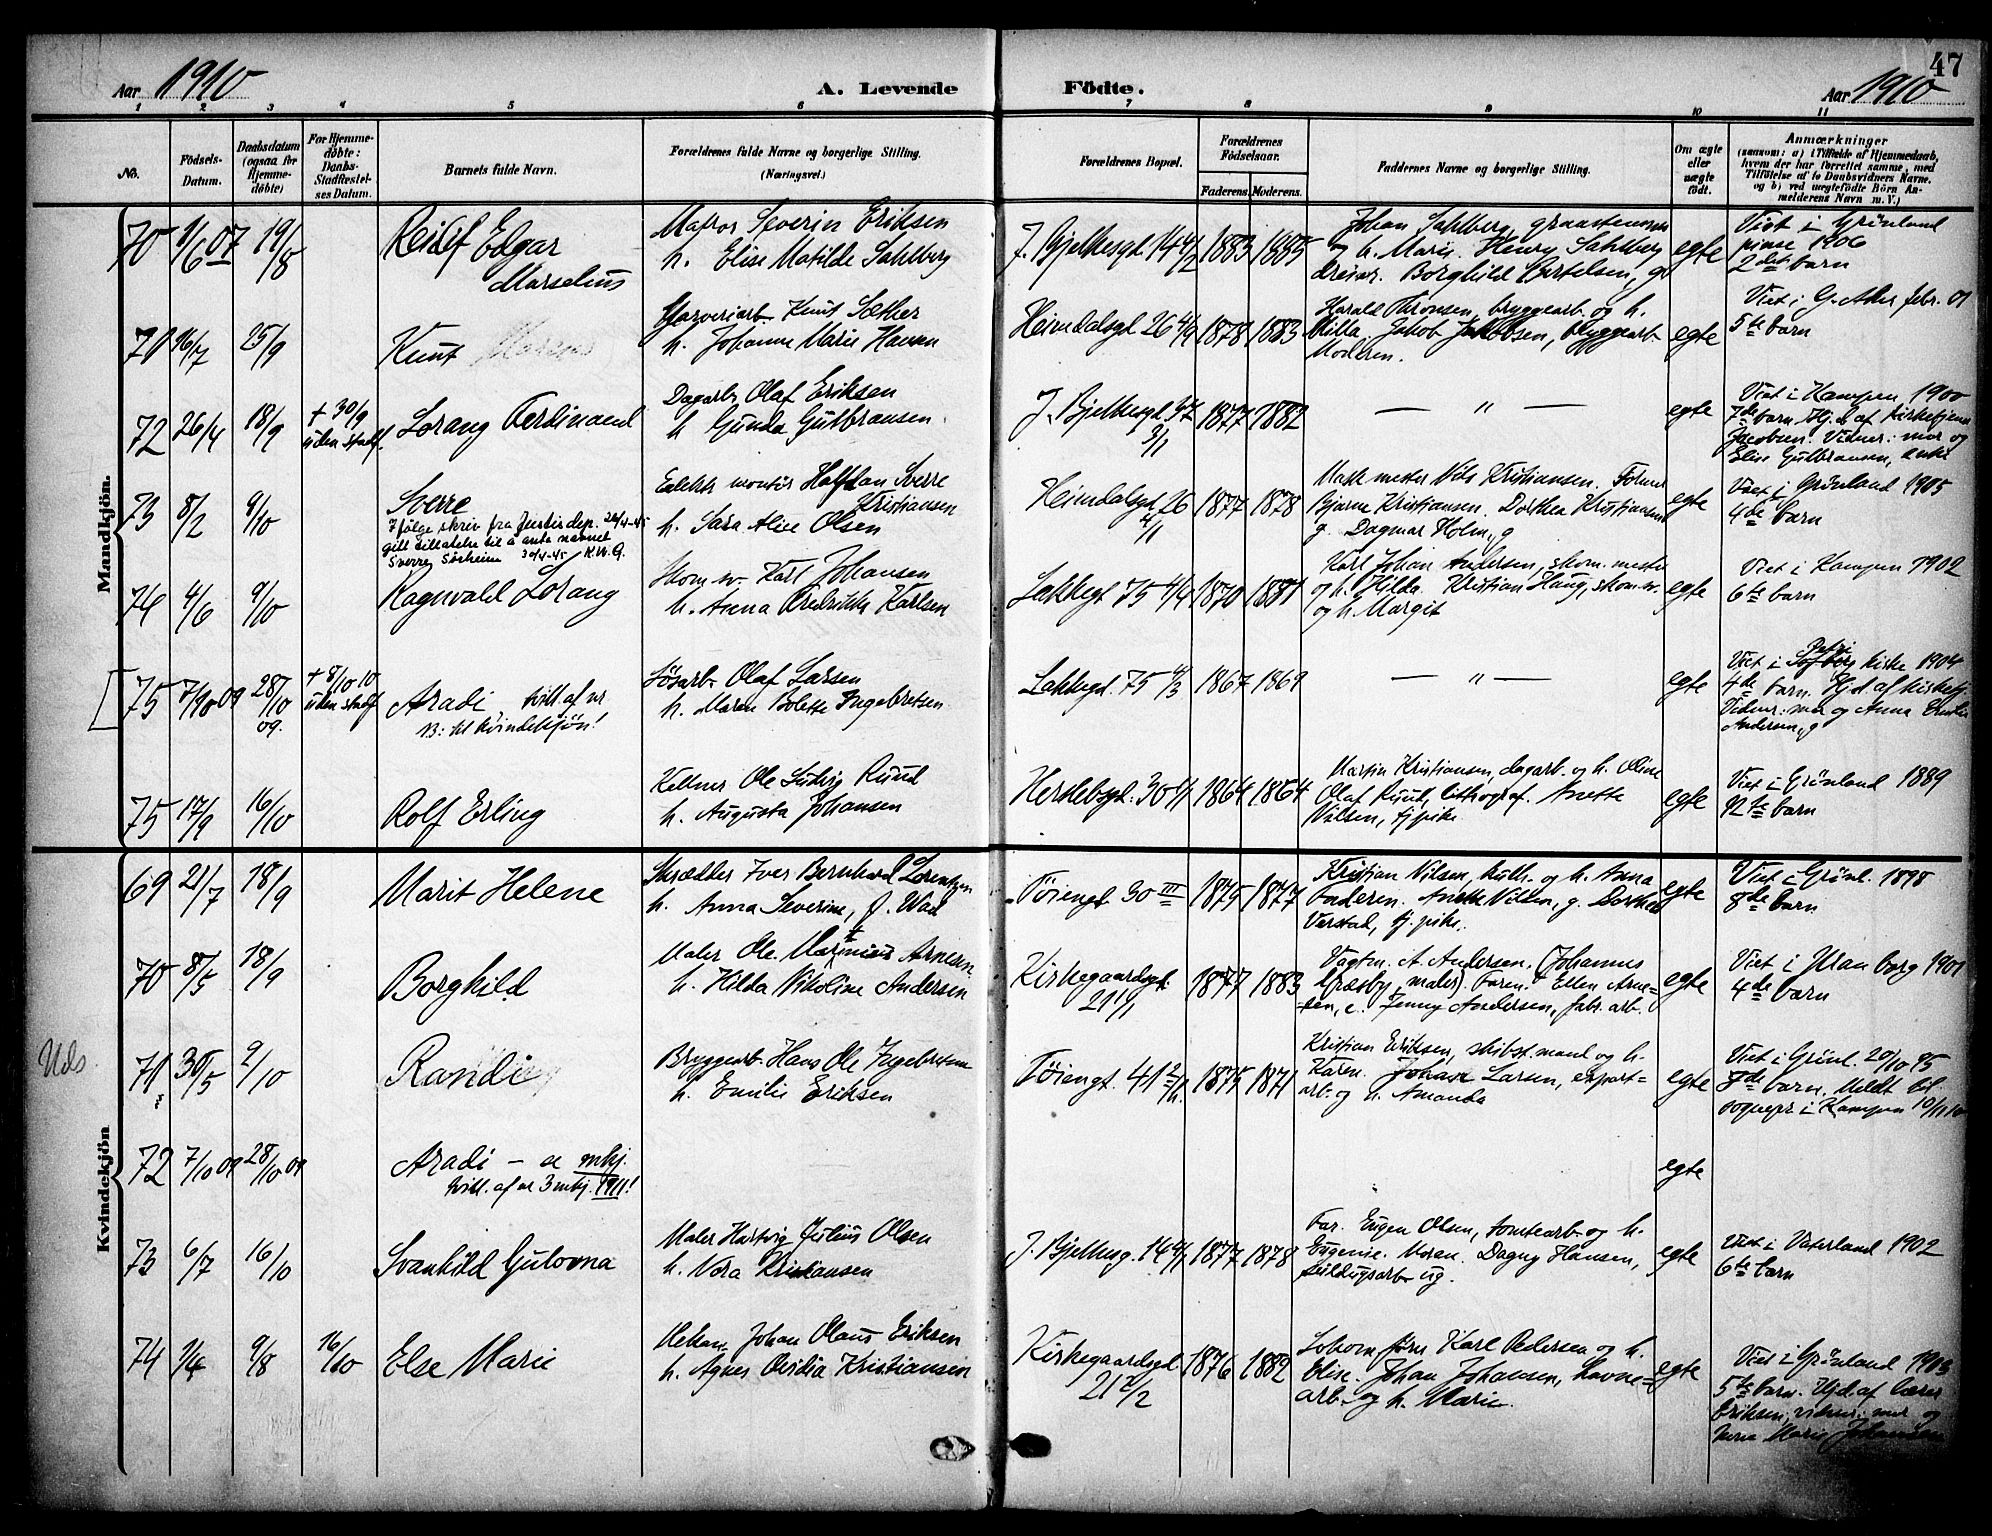 47
Aar 1910
A. Levende
Födte.
Aar 1910
1 2 3 4 5 6 7 8 9 10 11
No.
Födsels-
Datum.
Daabsdatum
(ogsaa for
Hjemme-
döbte)
For Hjemme-
döbte:
Daabs-
Stadfæstel-
ses Datum.
Barnets fulde Navn.
Forældrenes fulde Navne og borgerlige Stilling.
(Næringsvei.)
Forældrenes Bopæl.
Forældrenes
Födselsaar.
Faderens. Moderens.
Faddernes Navne og borgerlige Stilling.
Om ægte
eller
uægte
födt.
Anmærkninger
(saasom: a) i Tilfælde af Hjemmedaab,
hvem der har forrettet samme, med
Tilföielse af to Daabsvidners Navne,
og b) ved uægtefödte Börn An-
melderens Navn m. V.)
Mandkjön.
70 1/6 07 19/8
Reidlf Edgar
Marselius
Matros Severin Eriksen
h. Elise Matilde Sahlberg
J. Bjelkesgt. 14 4/2 1883 1885
Johan Sahlberg,
og h. Marie. Henry Sahlberg
dreier. Borghild Bertelsen, g.
egte
Viet i Grönland
pinse 1906
2det barn
71 16/7 25/9
Knut
Garveriarb. Knut Sæther
h. Johanne Marie Hansen
Heimdalsgt 26 4/9 1878 1883
Harald Thronsen, bryggearb. og h.
Milla. Jakob Jakobsen, bryggearb.
Moderen.
egte
Viet i G. Aker febr. 01
5te barn
72 26/4 18/9
+ 30/9
uden stadf.
Lorang Ferdinand
Dagarb. Olaf Eriksen
h. Gunda Gulbransen.
J. Bjelkesgt. 37
3/1
1877 1882
— " —
egte
Viet i Kampen 1900
7de barn Hj.d. af kirketjener
Jacobsen. Vidner: mor og
Elise Gulbransen, enke
73 8/2 9/10
Sverre
Ifølge skriv fra Justisdep. 24/4-45
gitt tillatelse til å anta navnet
Sverre Sörheim 30/4-45 K.W.G.
Elektr. montör Halfdan Sverre
Kristiansen
h. Sara Alise Olsen
Heimdalsgt 26
4/1
1877 1878
Mask. mester Nils Kristiansen.
Bjarne Kristiansen. Dorthea Kristiansen
g. Dagmar Holm, g
egte
Viet i Grönland 1905
4de barn
74 4/6 9/10
Ragnvald Lorang
Skom. sv. Karl Johansen
h. Anna Fredrikke Karlsen
Lakkegt 75 4/4 1870 1881
Karl Johan Andersen, skom. mester
og h. Hilda. Kristian Haug, skom. sv.
og h. Margit
egte
Viet i Kampen 1902
6te barn
75 7/10 09 28/10
09.
+ 8/10 10
uden stadf
Aradi, tvill. af nr
13: til kvindekjön!
Lösarb. Olaf Larsen
h. Maren Bolette Ingebretsen
Lakkegt. 75 4/3 1867 1869
— " —
egte
Viet i Petri kirke 1904
4de barn. Hj.d. af kirketj.
Vidner: mor og Anna Emilie
Andersen, g
75 17/9 16/10
Rolf Erling
Kelner Ole Ludvig Ruud
h. Augusta Johansen
Herslebsgt: 30 4/1 1864 1864
Martin Kristiansen, dagarb. og h. Oline
Olaf Ruud, lithograf. Anette
Nilsen, tj.pike
egte
Viet i Grönland 1889
12te barn
Kvindekjön
69 21/7 18/9
Marit Helene
Skrædder Iver Bernhard Lorentzen
h. Anna Severine, f. Wad
Töiengt 30 III 1875 1877
Kristian Nilsen, kuth. og h. Anna
Faderen. Anette Nilsen, g. Dorthea
Verstad, tj. pike.
egte
Viet i Grönl. 1898
8de barn
70 8/5 18/9
Borghild
Maler Ole Marinius Arnesen
h. Hilda Nikoline Andersen
Kirkegaardsgt.
21 1/1
1877 1883
Vagtm. A. Andersen. Johannes
Græsby, maler. Faren. Ellen Arne-
sen, e. Jenny Andersen, fabr. arb.
egte
Viet i Uranborg 1901
4de barn
Uds.
71 30/5 2/10
Randi
Bryggearb. Hans Ole Ingebretsen
h. Emilie Eriksen
Töiengt. 41 2/h. 1875 1871
Kristian Eriksen, skibst.mand og h.
Karen. Johan Larsen, export-
arb. og h. Amanda
egte
Viet i Grönl. 20/10 95
8de barn. Meldt til
sognepr i Kampen 10/11 10
72 7/10 09 28/10 09
Aradi — se mkj.
tvill. af nr 3 mkj. 1911!
egte
73 6/7 16/10
Svanhild Gulovna
Maler Hartvig Julius Olsen
h. Nora Kristiansen
J. Bjelkesg. 14 4/1 1877 1878
Far. Eugen Olsen, tomtearb. og h.
Eugenie. Moren. Dagny Hansen,
ug.
egte
Viet i Vaterland 1902
6te barn
74 1/4 9/8 16/10
Else Marie
Mekan. Johan Olaus Eriksen
h. Agnes Ovidia Kristiansen
Kirkegaardsgt.
21 2/2
1876 1882
Lokom. förer Karl Pedersen og h.
Elise. Johan Johansen, havne-
arb. og h. Marie.
egte
Viet i Grönland 1903
5te barn. Hj.d. af lærer
Eriksen, vidner: mor og
Marie Johansen